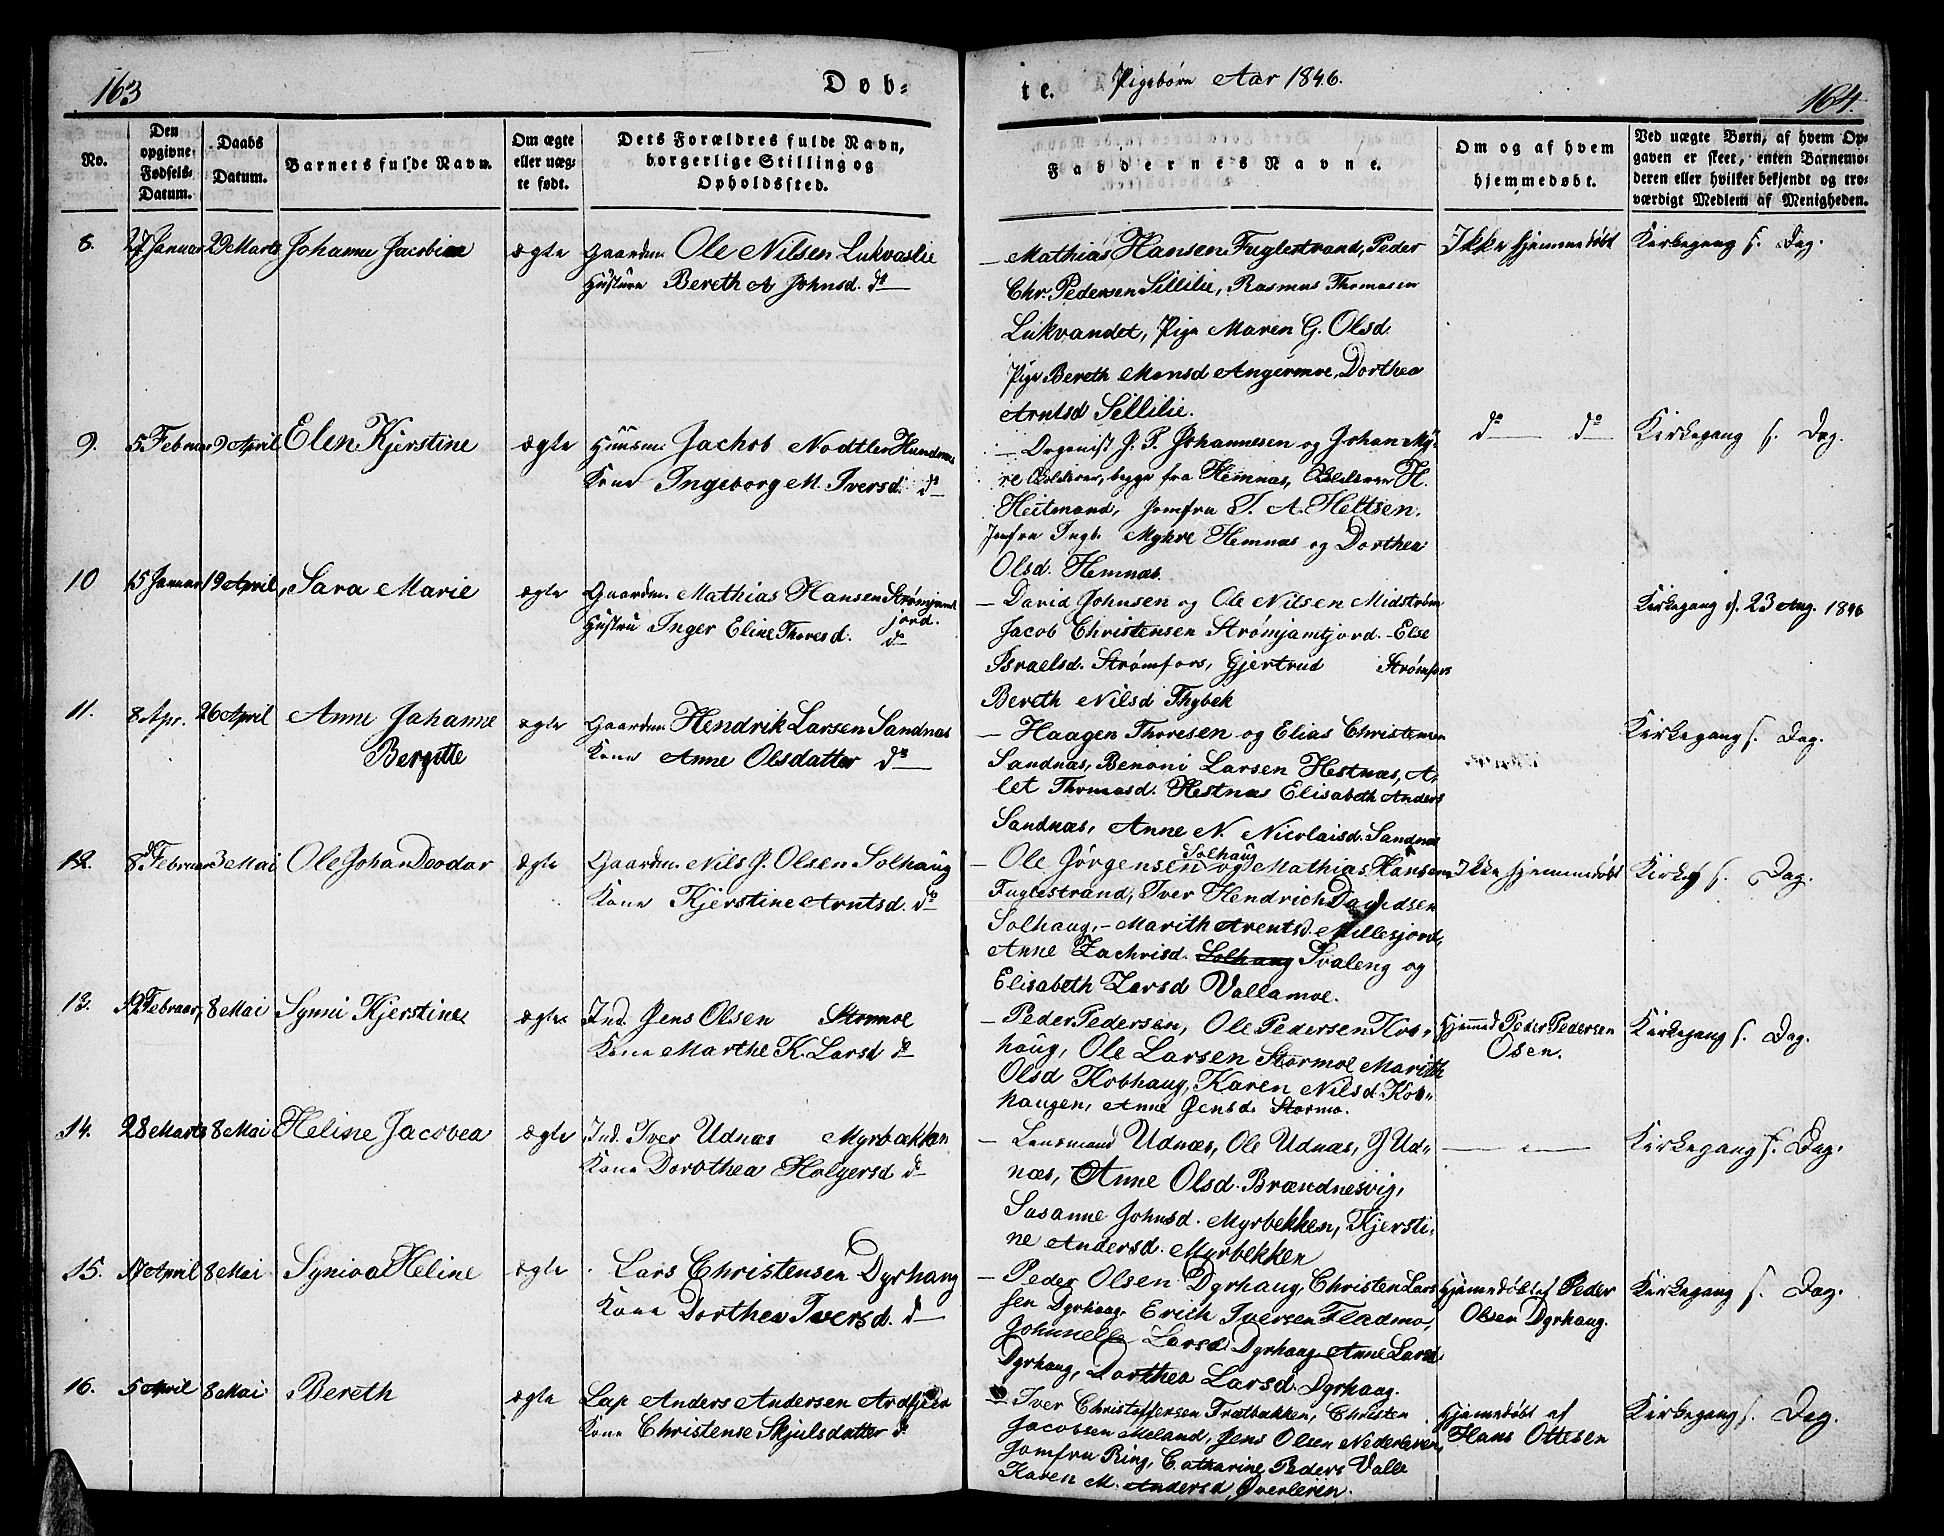 163
Døb-
te.
Pigebørn Aar 1846.
164.
No.
Den
opgivne
Fødsels-
Datum.
Daabs
Datum.
Barnets fulde Navn.
Om ægte
eller uæg-
te født.
Dets Forældres fulde Navn,
borgerlige Stilling og
Opholdssted.
Faddernes Navne.
Om og af hvem
hjemmedøbt.
Ved uægte Børn, af hvem Op-
gaven er skeet, enten Barnemo-
deren eller hvilket bekjendt og tro-
værdigt Medlem af Menigheden.
8. 27 Januar 29 Marts Johanne Jacobine ægte Gaardm. Ole Nilsen Lukvaslie
Hustrue Bereth A Johnsd. do
— Mathias Hansen Fuglestrand, Peder
Chr. Pedersen Sillilie, Rasmus Thomasen
Lukvandet, Pige Maren G. Olsd.
Pige Bereth Monsd Angermoe, Dorthea
Arntsd Sillilie.
Ikke hjemmedøbt
Kirkegang s. Dag.
9. 5 Februar 9 April Elen Kjerstine ægte Huusm. Jachob Nodtler Hundnes
Kone Ingeborg M. Iversd. do
— Organist J. P. Johannesen og Johan My-
re begge fra Hemnæs, H.
Heitmand, Jomfru T. A. Heltsen,
Jomfru Ingb. Myhre Hemnæs og Dorthea
Olsd. Hemnæs.
do do
Kirkegang s. Dag.
10 15 Januar 19 April, Sara Marie ægte Gaardm. Mathias Hansen Strømjamt
jord.
Hustru Inger Eline Thoresd. do
— David Johnsen og Ole Nilsen Midstrøm
Jacob Christensen Strømjamtjord. - Else
Israelsd. Strømfors, Gjertrud Strømfors
Bereth Nilsd Thybek
Kirkegang d. 23 Aug. 1846
11. 8 Apr. 26 April Anne Johanne
Bergitte
ægte Gaardm Hendrik Larsen Sandnæs
Kone Anne Olsdatter do
— Haagen Thoresen og Elias Christensen
Sandnæs, Benoni Larsen Hestnæs, A-
let Thomasd. Hestnæs Elisabeth Anders
Sandnæs, Anne N. Nicolaisd. Sandnæs
Kirkegang s. Dag.
12. 8 Februar 3 Mai Ole Johan Deodar ægte Gaardm. Nils J. Olsen Solhaug
Kone Kjerstine Arntsd. do
Solhaug
— Ole Jørgensen og Mathias Hansen
Fuglestrand, Iver Hendrich Davidsen
Solhaug, - Marith Arentsd. Millesjord,
Anne Zachrisd. Solhaug Svaleng og
Elisabeth Larsd Vallamoe.
Ikke hjemmedøbt
Kirkeg s. Dag.
13. 12 Februar, 8 Mai Synni Kjerstine ægte Ind. Jens Olsen Stormoe
Kone Marthe K. Larsd do
— Peder Pedersen, Ole Pedersen Kob-
haug, Ole Larsen Stormoe Marith
Olsd Kobhaug, Karen Nilsd Kob-
haugen, Anne Jensd. Stormo.
Hjemmed Peder Pedersen
Osen.
Kirkegang s. Dag.
14. 28 Marts 8 Mai Heline Jacobea ægte Ind. Iver Udnæs Myrbækken
Kone Dorothea Holgersd do
— Lensmand Udnæs, Ole Udnæs, J Ud-
næs, Anne Olsd. Brændnesvig,
Susanne Johnsd. Myrbekken, Kjersti-
ne Andersd. Myrbekken
Kirkegang s. Dag.
15. 17 April 8 Mai Syniva Heline ægte Lars Christensen Dyrhaug
Kone Dorthea Iversd. do
— Peder Olsen Dyrhaug, Christen Lars
sen Dyrhaug, Erich Iversen Fladmo,
Johnnella Larsd Dyrhaug Anne Larsd
Dyrhaug, Dorthea Larsd. Dyrhaug.
Hjemmedøbt af Peder
Olsen Dyrhaug.
Kirkegang s. Dag.
16. 5 April 8 Mai Bereth ægte Lap Anders Andersen
Kone Christense Skjulsdatter do
— Iver Christoffersen Fratbækken, Christen
Jacobsen Meland, Jens Olsen Nederleren,
Jomfru Ring, Catharine Peders Valle
Karen M. Andersd Overleren.
Hjemmedøbt af
Hans Ottesen
Kirkegang s. Dag.